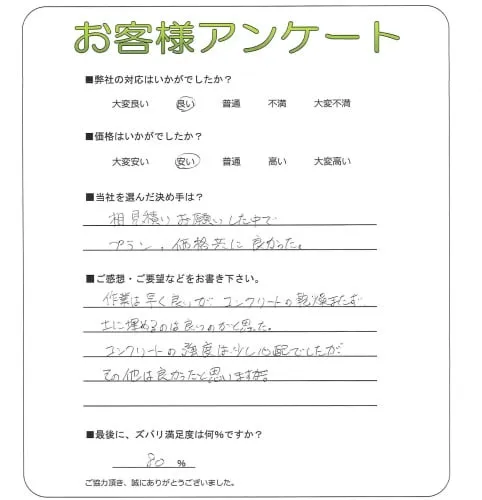 お客様アンケート
■弊社の対応はいかがでしたか？
大変良い 良い 普通 不満 大変不満
■価格はいかがでしたか？
大変安い 安い 普通 高い 大変高い
■当社を選んだ決め手は？
相見積りお願いした中で
プラン、価格共に良かった。
■ご感想・ご要望などをお書き下さい。
作業は早く良いが コンクリートの乾燥またず
土に埋めるのは良いのかと思った。
コンクリートの強度は少し心配でしたが
その他は良かったと思います。
■最後に、ズバリ満足度は何%ですか？
80 %
ご協力頂き、誠にありがとうございました。